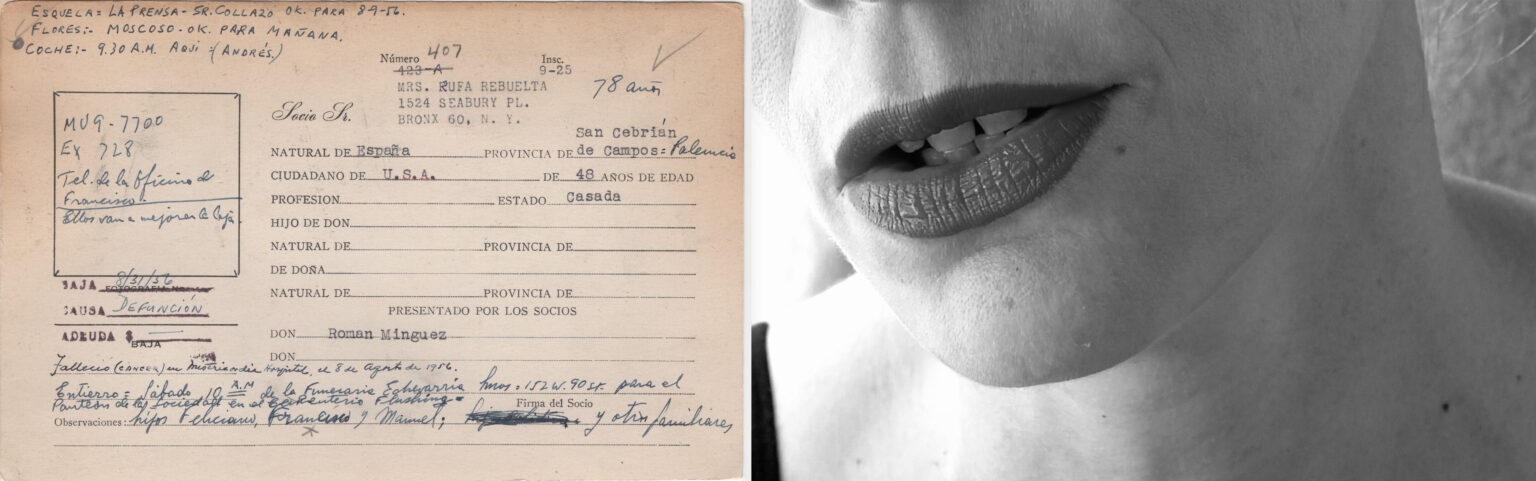 ESQUELA = LA PRENSA - SR. COLLAZO OK. PARA 8-9-56.
FLORES:- MOSCOSO - OK. PARA MAÑANA.
COCHE:- 9.30 A.M. AQUI - (ANDRÉS.)
Número 407
423-A
Insc.
9-25
MRS. RUFA REBUELTA
1524 SEABURY PL.
BRONX 60, N. Y.
78 años
Socio Sr.
MU9-7700
Ex 728
Tel. de la Oficina de
Francisco.
Ellos van a mejorar la caja
NATURAL DE España PROVINCIA DE San Cebrián de Campos = Palencia
CIUDADANO DE U.S.A. DE 48 AÑOS DE EDAD
PROFESION ESTADO Casada
HIJO DE DON
NATURAL DE PROVINCIA DE
DE DOÑA
NATURAL DE PROVINCIA DE
PRESENTADO POR LOS SOCIOS
DON Roman Minguez
DON
BAJA 8/31/56
CAUSA DEFUNCIÓN
ADEUDA $
BAJA
Falleció (CANCER) en Misericordia Hospital, el 8 de Agosto de 1956.
Entierro = Sábado 10 A.M de la Funeraria Echevarría hnos = 152 W. 90 St. para el
Panteón de la Sociedad en el Cementerio Flushing =
Firma del Socio
Observaciones: hijos Feliciano, Francisco y Manuel; y otros familiares